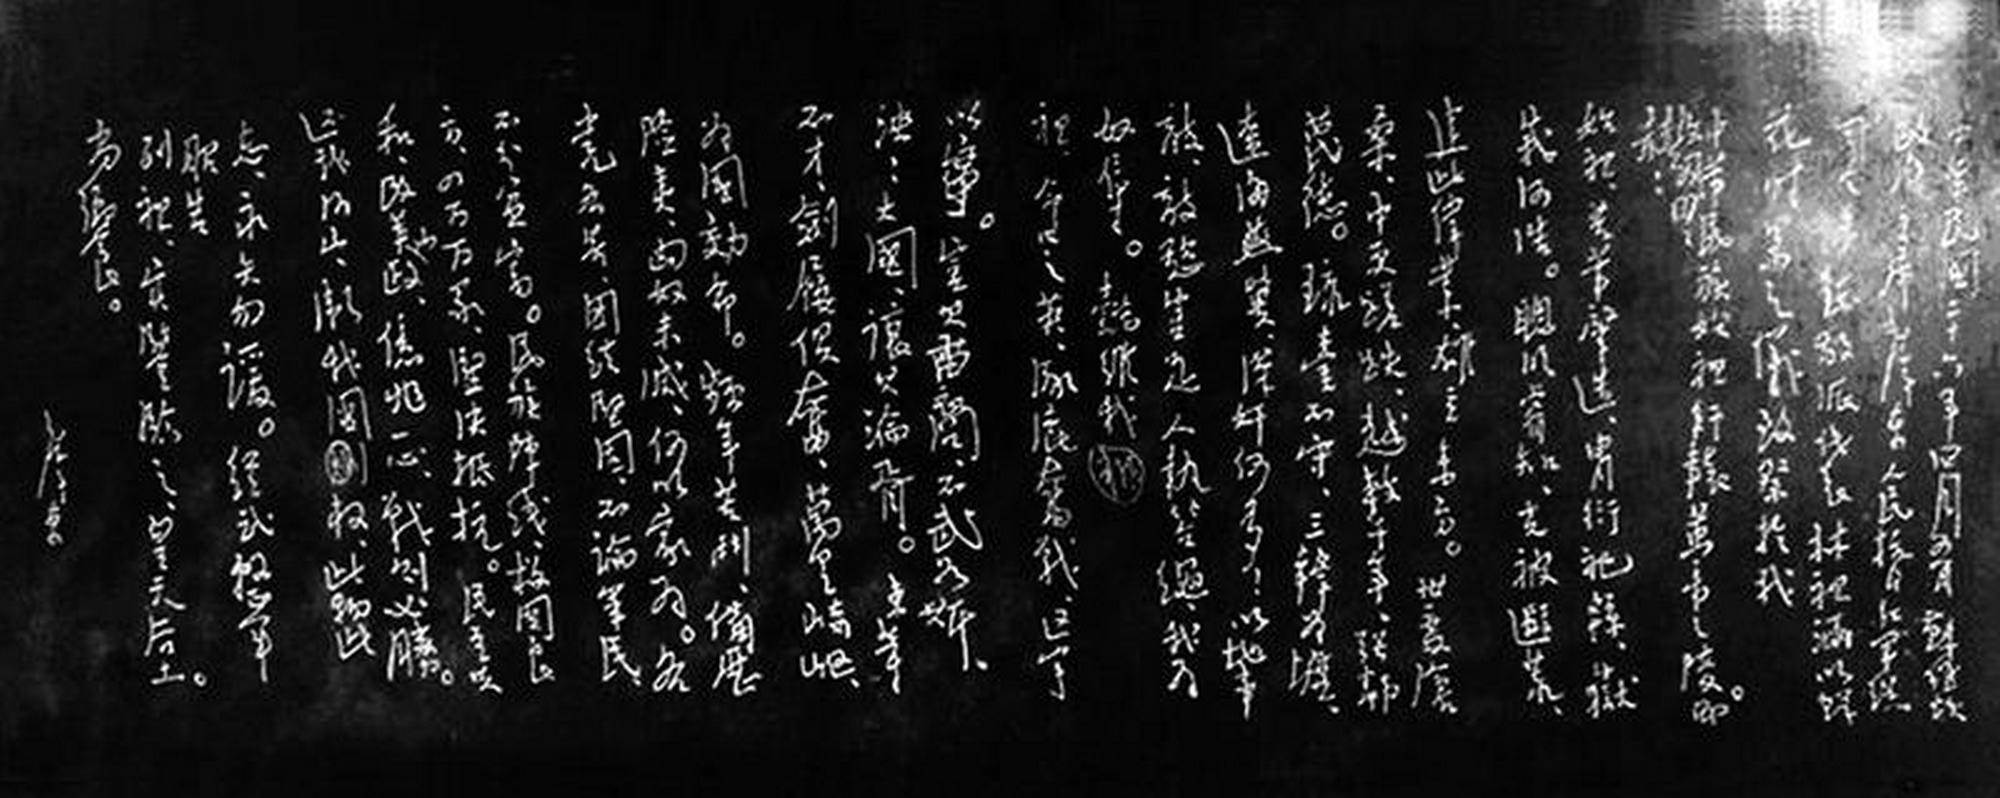 中華民國二十六年四月五日蘇維埃
政府主席毛澤東人民抗日紅軍總
司令朱德敬派代表林祖涵以鮮
花時果之儀致祭於我
中華民族始祖軒轅黃帝之陵。而
致詞曰
赫赫
始祖、吾華肇造、冑衍祀緜、嶽
峨河浩。聰明睿知、光被遐荒、
建此偉業、雄立東方。世變滄
桑、中更蹉跌、越數千年、強鄰
蔑德。琉臺不守、三韓為墟、
遼海燕冀、漢奸何多!以地事
敵、敵慾豈足、人執笞繩、我為
奴辱。懿維我
祖、命世之英、涿鹿奮戰、區宇
以寧。豈其苗裔、不武如斯、
泱泱大國、讓其淪胥。東等
不才、劍屨俱奮、萬里崎嶇、
為國効命。頻年苦鬥、備歷
險夷、匈奴未滅、何以家為。各
黨各界、團結堅固、不論軍民
不分貧富。民族陣線、救國良
方、四万万眾、堅決抵抗。民主共
和、改革內政、億兆一心、戰則必勝。
還我河山、衛我國權、此物此
志、永矢勿諼。經武整軍
昭告
列祖、實鑒臨之、皇天后土。
尚饗。
毛澤東